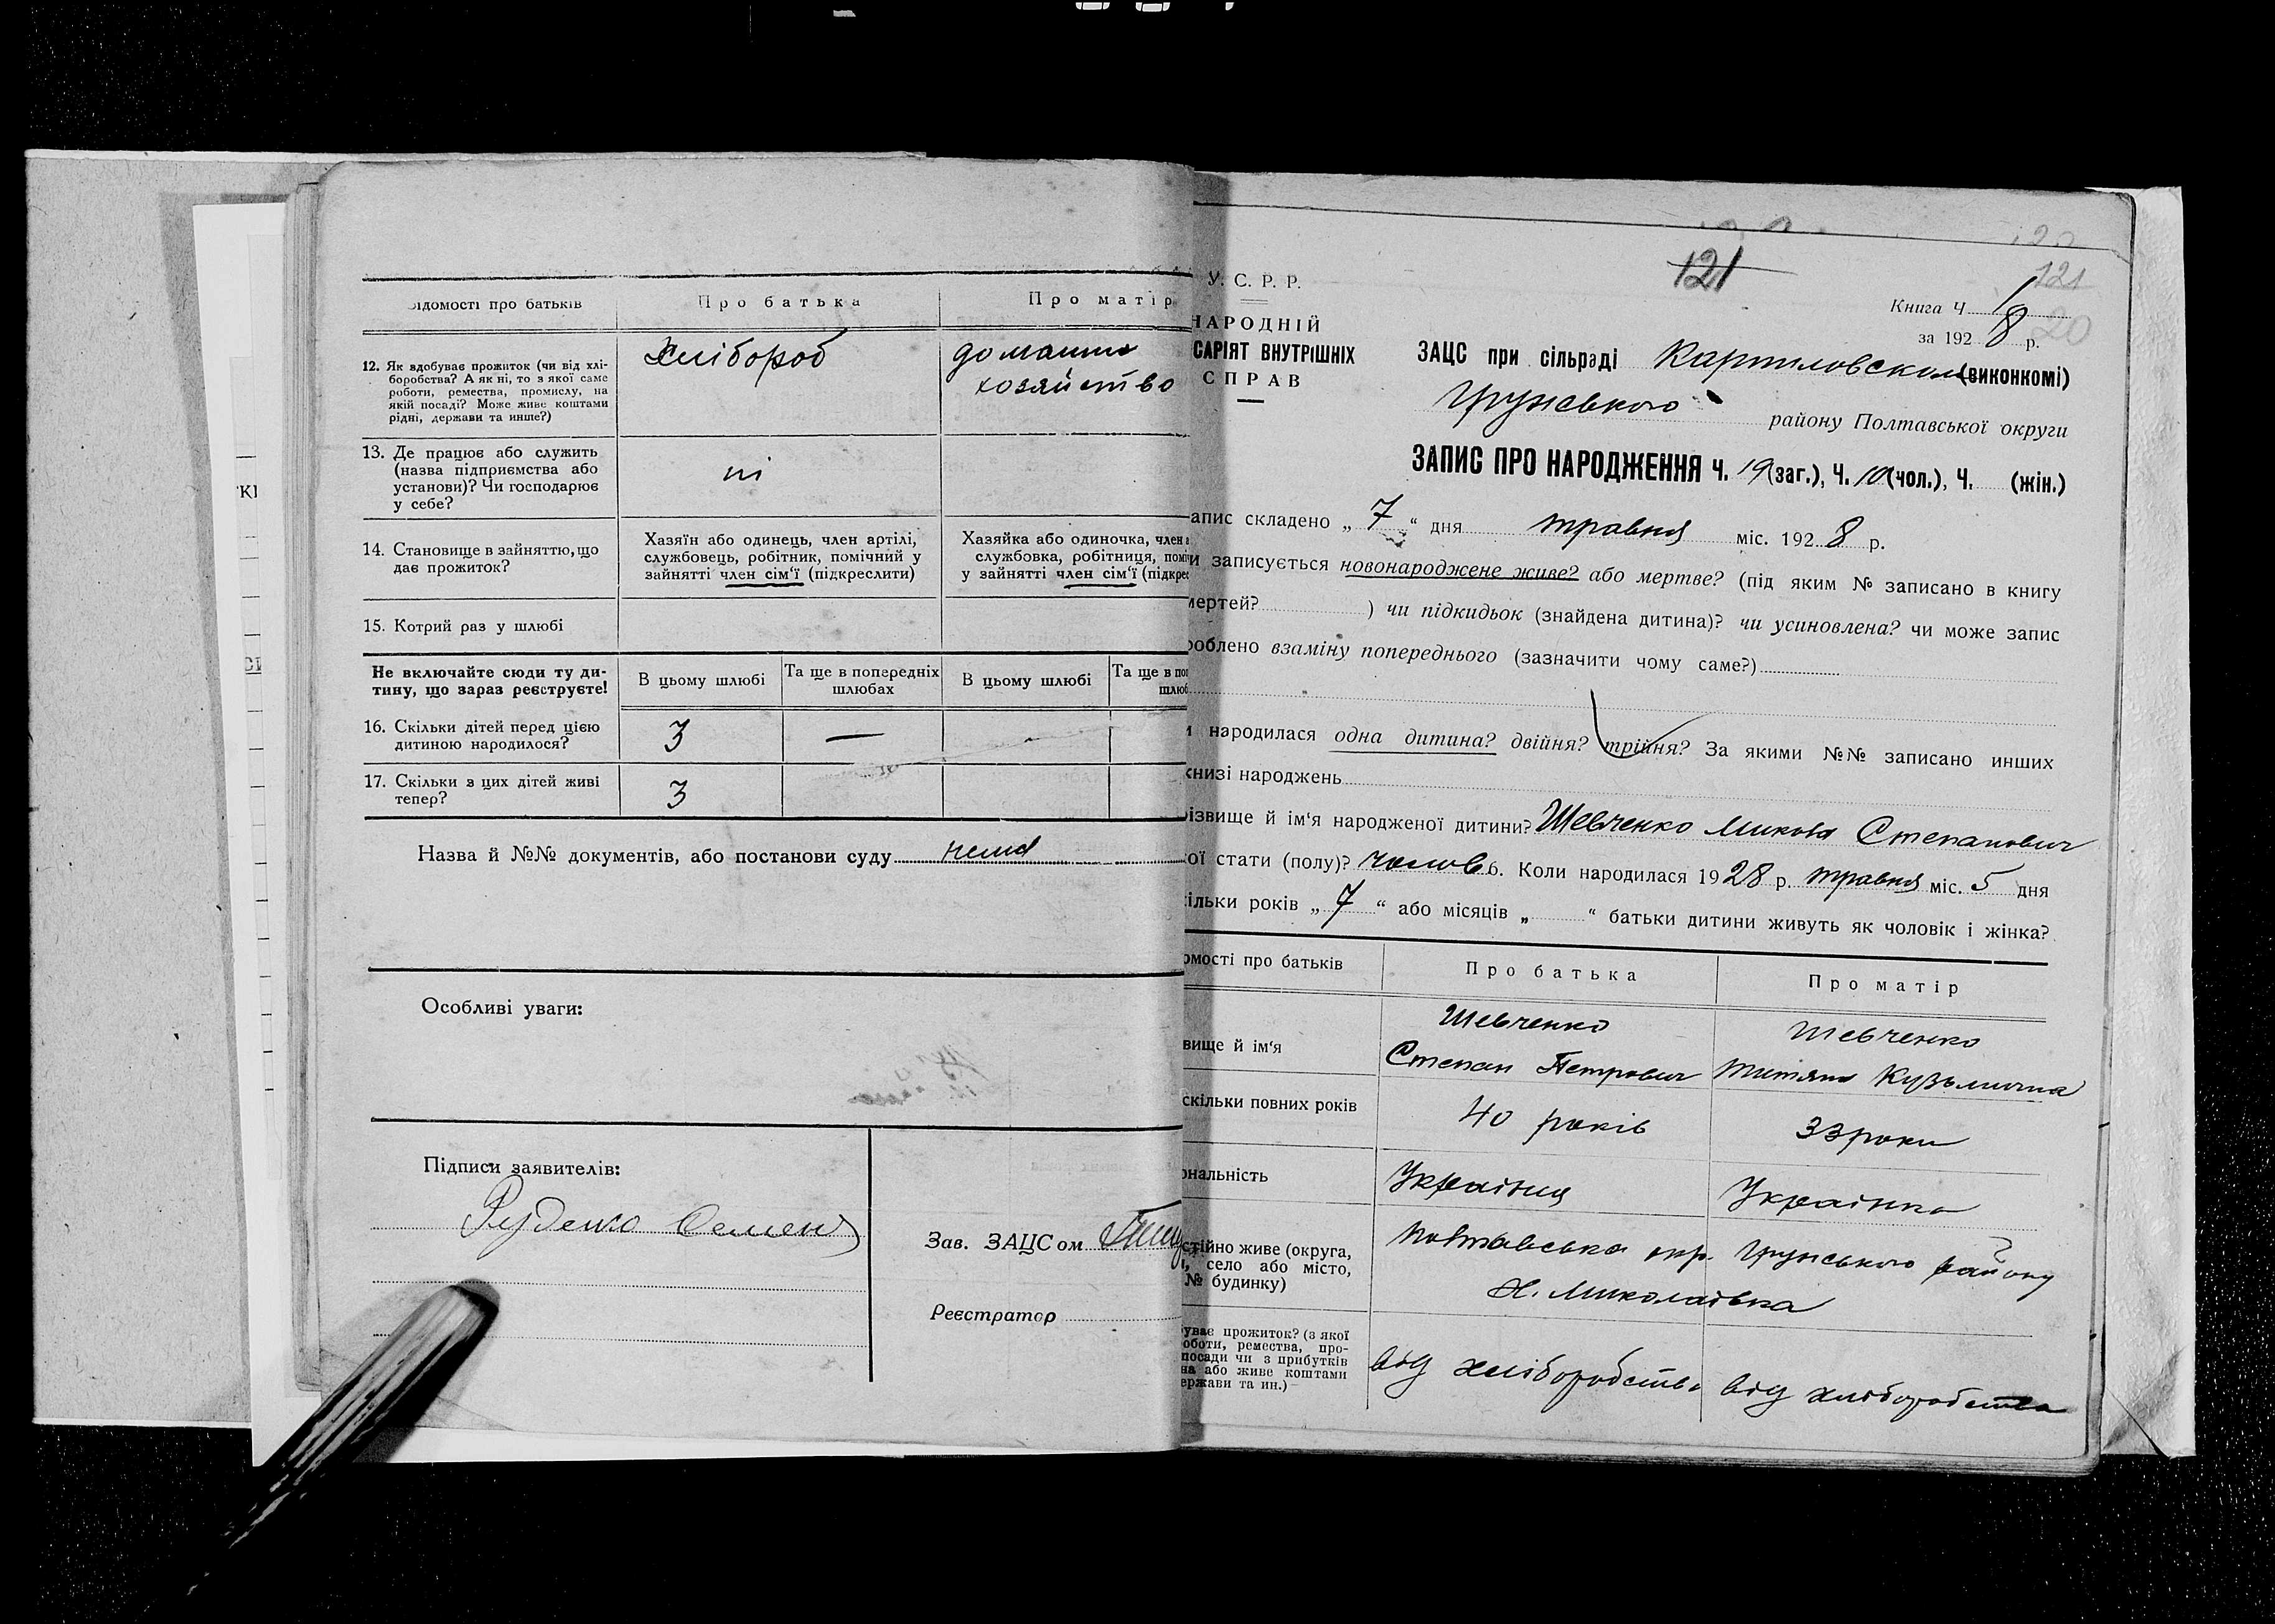 Відомості про батьків
Про батька
Про матір
12. Як здобуває прожиток (чи від хлі-
боробства? А як ні, то з якої саме
роботи, ремества, промислу, на
якій посаді? Може живе коштами
рідні, держави та инше?)
Хлібороб
домашнє
хозяйство
13. Де працює або служить
(назва підприємства або
установи)? Чи господарює
у себе?
ні
14. Становище в зайняттю, що
дає прожиток?
Хазяїн або одинець, член артілі,
службовець, робітник, помічний у
зайнятті член сім'ї (підкреслити)
Хазяйка або одиночка, член а
службовка, робітниця, поміч
у зайнятті член сім'ї (підкрес
15. Котрий раз у шлюбі
Не включайте сюди ту ди-
тину, що зараз реєструєте!
В цьому шлюбі
Та ще в попередніх
шлюбах
В цьому шлюбі
Та ще в поп
шлюб
16. Скільки дітей перед цією
дитиною народилося?
3 —
17. Скільки з цих дітей живі
тепер?
3
Назва й №№ документів, або постанови суду нема
Особливі уваги:
Підписи заявителів:
Руденко Семен
Зав. ЗАЦСом
Реєстратор
121
121
20
У. С. Р. Р.
НАРОДНІЙ
САРІЯТ ВНУТРІШНІХ
СПРАВ
Книга Ч. 1
за 1928 р.
ЗАЦС при сільраді (виконкомі)
Грунського району Полтавської округи
ЗАПИС ПРО НАРОДЖЕННЯ Ч. 19 (заг.), Ч. 10 (чол.), Ч. (жін.)
апис складено „ 7 “ дня травня міс. 1928 р.
и записується новонароджене живе? або мертве? (під яким № записано в книгу
мертей? ) чи підкидьок (знайдена дитина)? чи усиновлена? чи може запис
роблено взаміну попереднього (зазначити чому саме?)
и народилася одна дитина? двійня? трійня? За якими №№ записано инших
книзі народжень
різвище й ім'я народженої дитини? Шевченко Микола Степанович
ої стати (полу)? чолов 6. Коли народилася 1928 р. травня міс. 5 дня
ільки років „ 7 “ або місяців „ “ батьки дитини живуть як чоловік і жінка?
омості про батьків
Про батька
Про матір
вище й ім'я
Шевченко
Степан Петрович
Шевченко
Титяна Кузьмична
скільки повних років
40 років
33 роки
ональність
Українця
Українка
стійно живе (округа,
село або місто,
№ будинку)
Полтавська окр. Грунського району
Х. Миколаівка
уває прожиток? (з якої
оботи, ремества, про-
посади чи з прибутків
на або живе коштами
ержави та ин.)
від хліборобства
від хліборобства